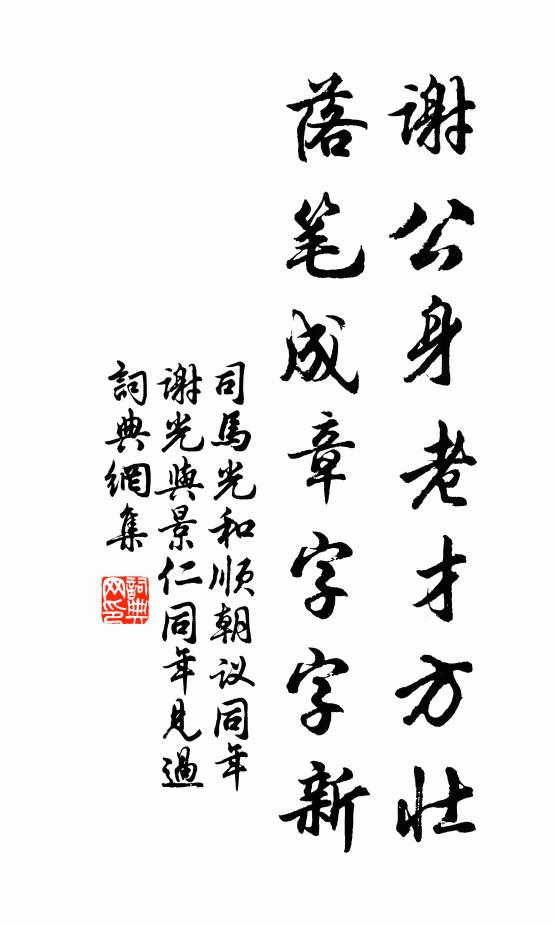 谢公身老才方壮
落笔成章字字新
司馬光和顺朝议同年
谢光與景仁同年見過
詞典網集
詞典
网印